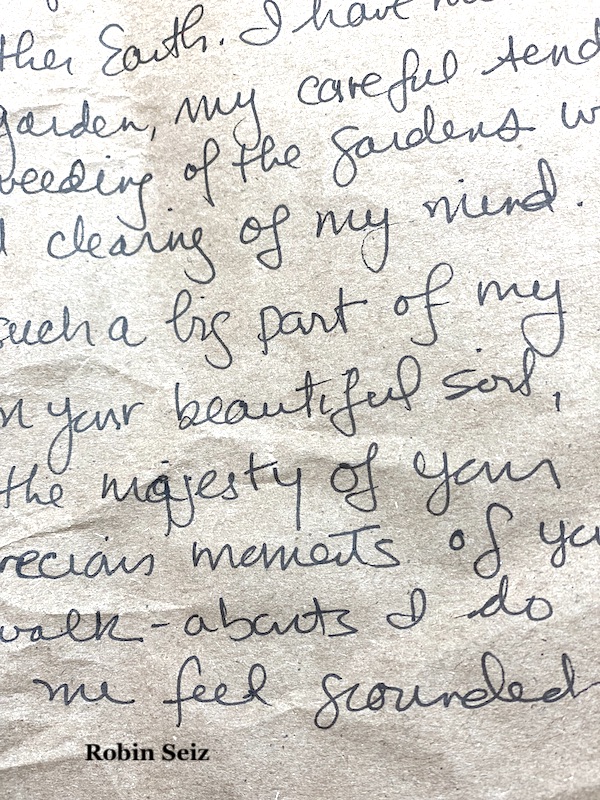 ther Earth. I have
garden, my careful tend
weeding of the gardens w
clearing of my mind.
such a big part of my
n your beautiful soil,
the majesty of your
recious moments of you
walk-abouts I do
me feel grounded
Robin Seiz